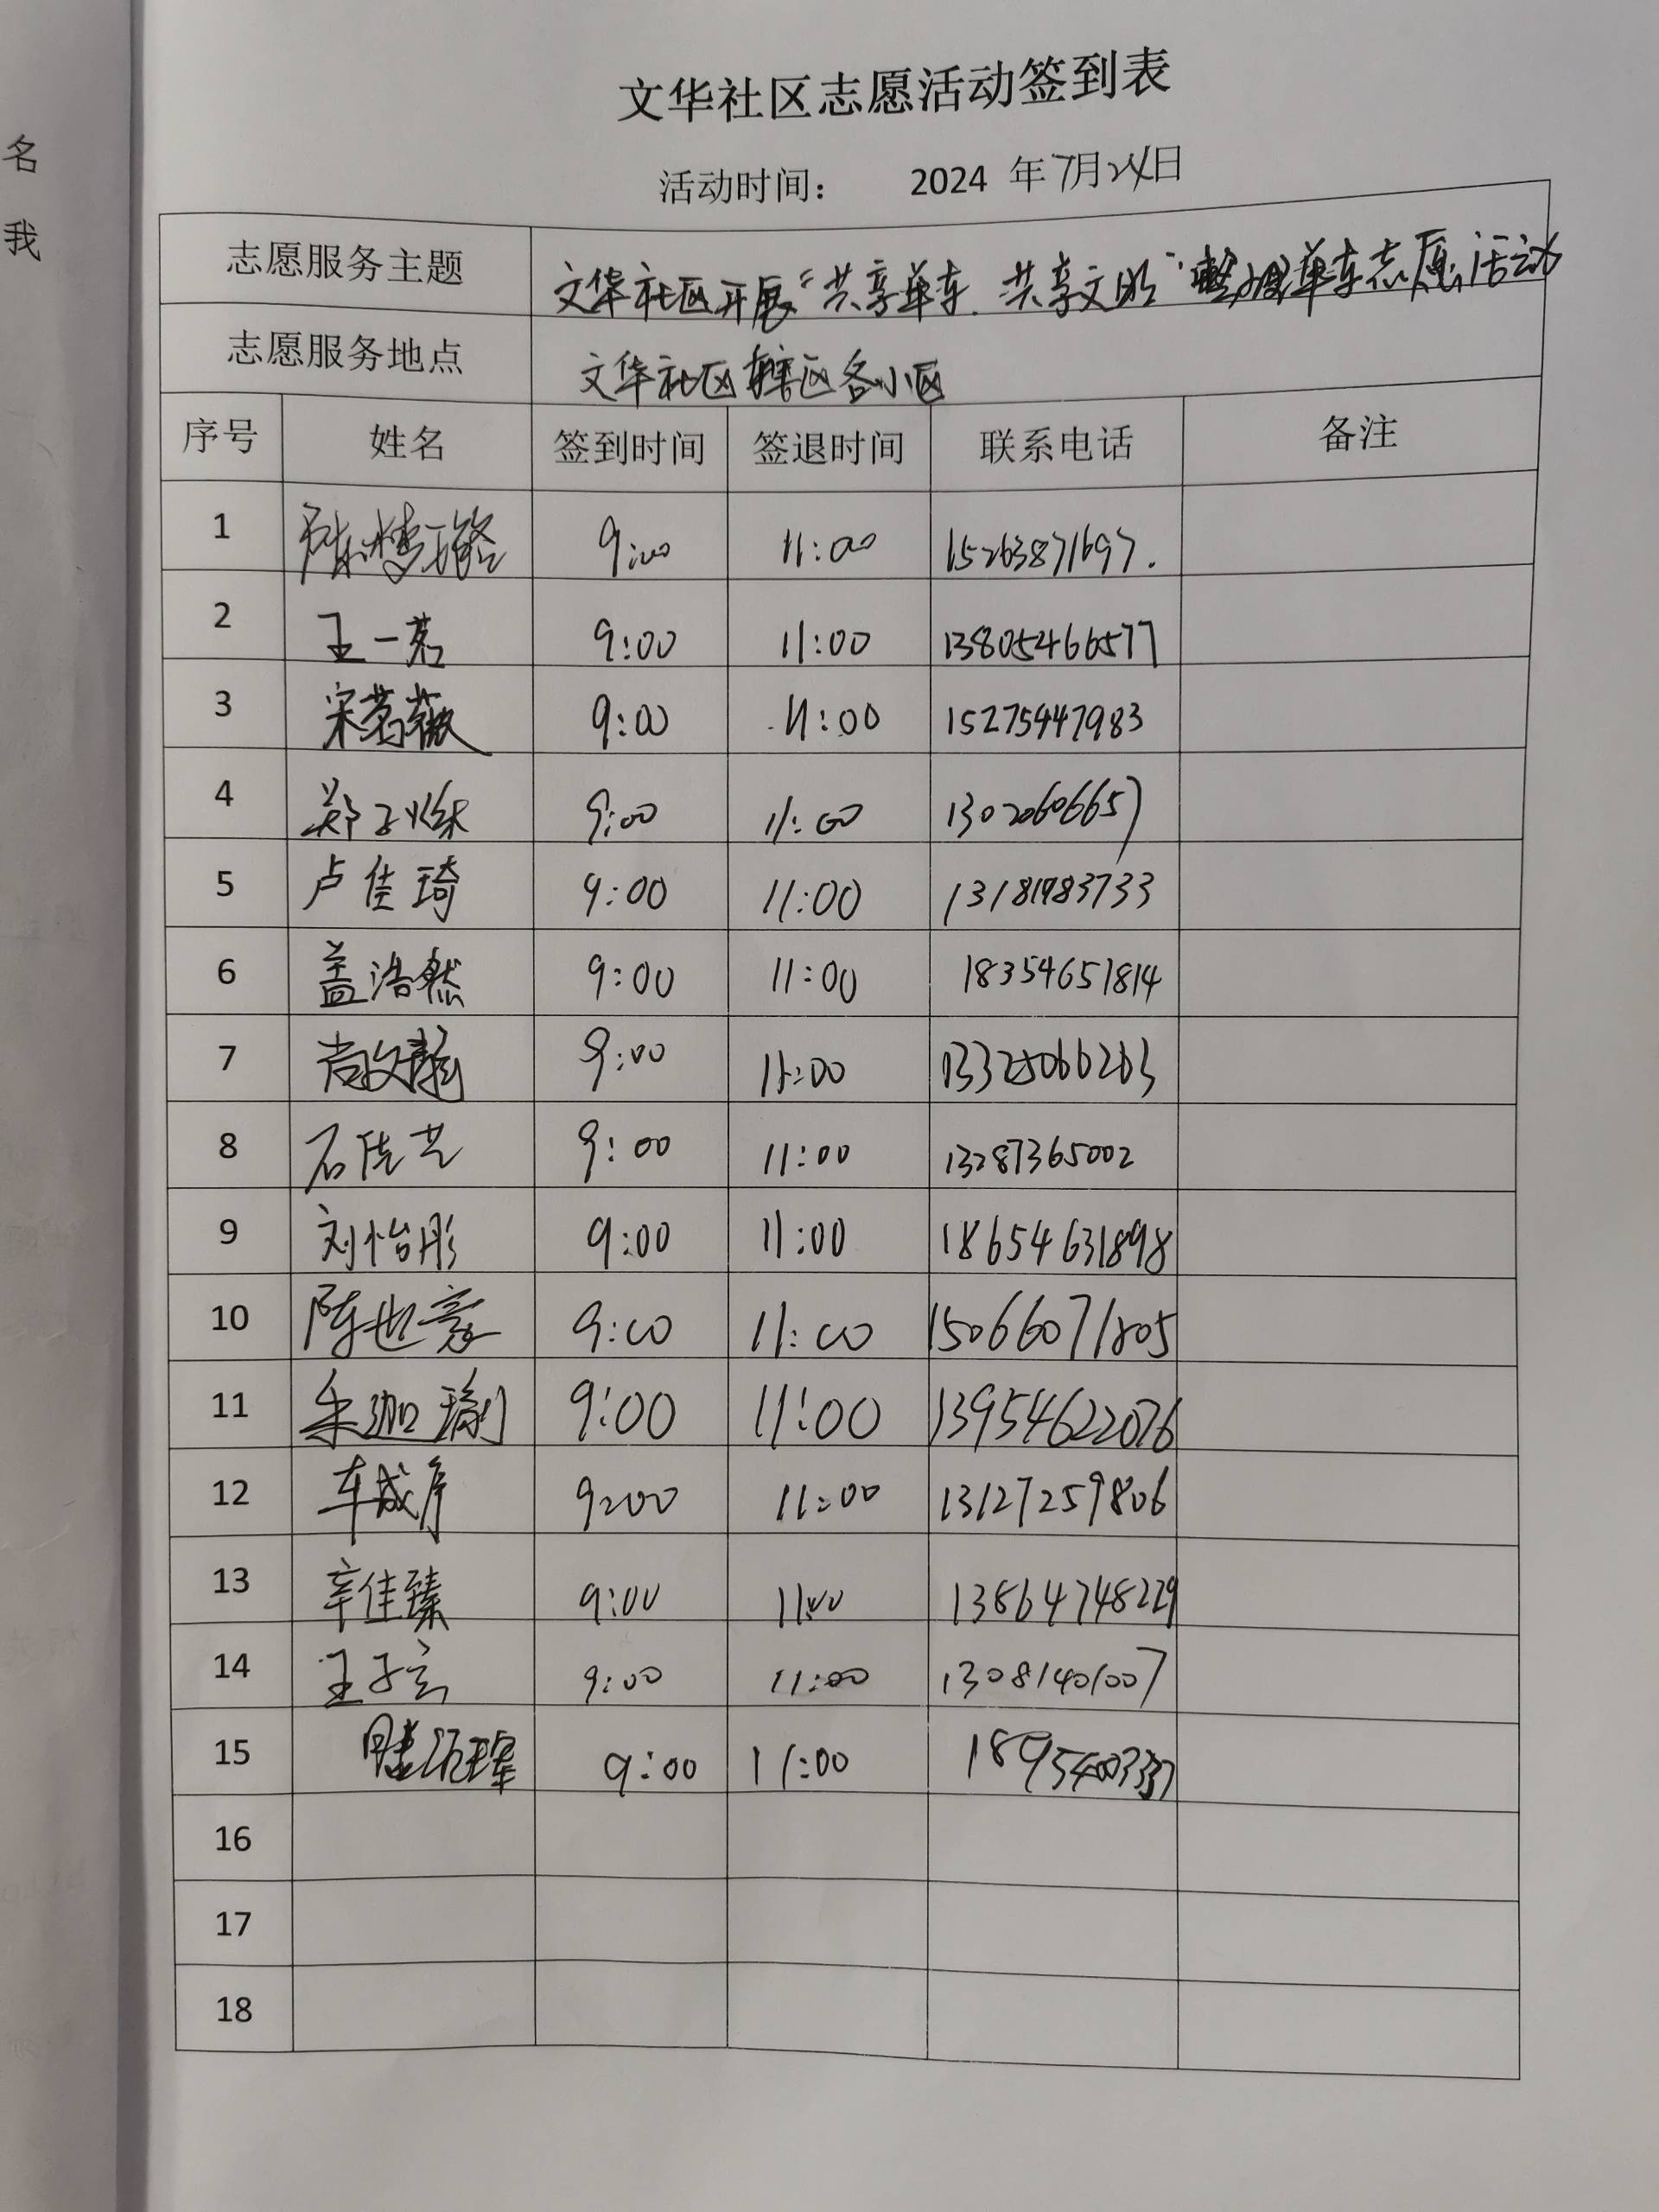 名
我
文华社区志愿活动签到表
活动时间： 2024 年7月24日
志愿服务主题 文华社区开展“共享单车、共享文明”整理单车志愿活动
志愿服务地点 文华社区辖区各小区
序号 姓名 签到时间 签退时间 联系电话 备注
1 9:00 11:00 15263871697.
2 王一茗 9:00 11:00 13805466577
3 宋茗薇 9:00 11:00 15275447983
4 郑子烁 9:00 11:00 13020606657
5 卢佳琦 9:00 11:00 13181983733
6 盖浩然 9:00 11:00 18354651814
7 尚文龍 9:00 11:00 13325066263
8 石佳艺 9:00 11:00 13287365002
9 刘怡彤 9:00 11:00 18654631898
10 陈也豪 9:00 11:00 15066071805
11 9:00 11:00 13954622076
12 车成序 9:00 11:00 13127259806
13 辛佳臻 9:00 11:00 13864748229
14 王子玄 9:00 11:00 13081401007
15 9:00 11:00
16
17
18